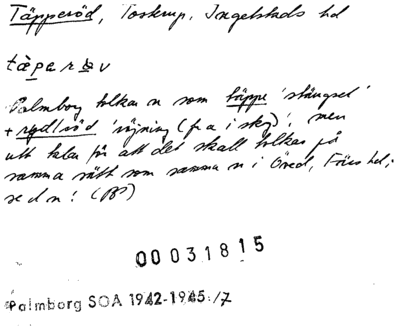 Täpperöd, Tosterup, Ingelstads hd
tàparǝv
Palmborg tolkar n som täppe 'stängsel'
+ ryd/röd 'röjning (fr a i skog)', men
att talar för att det skall tolkas på
samma sätt som samma n i Öved, Färs hd;
se d n! (BP)
00031815
Palmborg SOA 1942-1945:/7